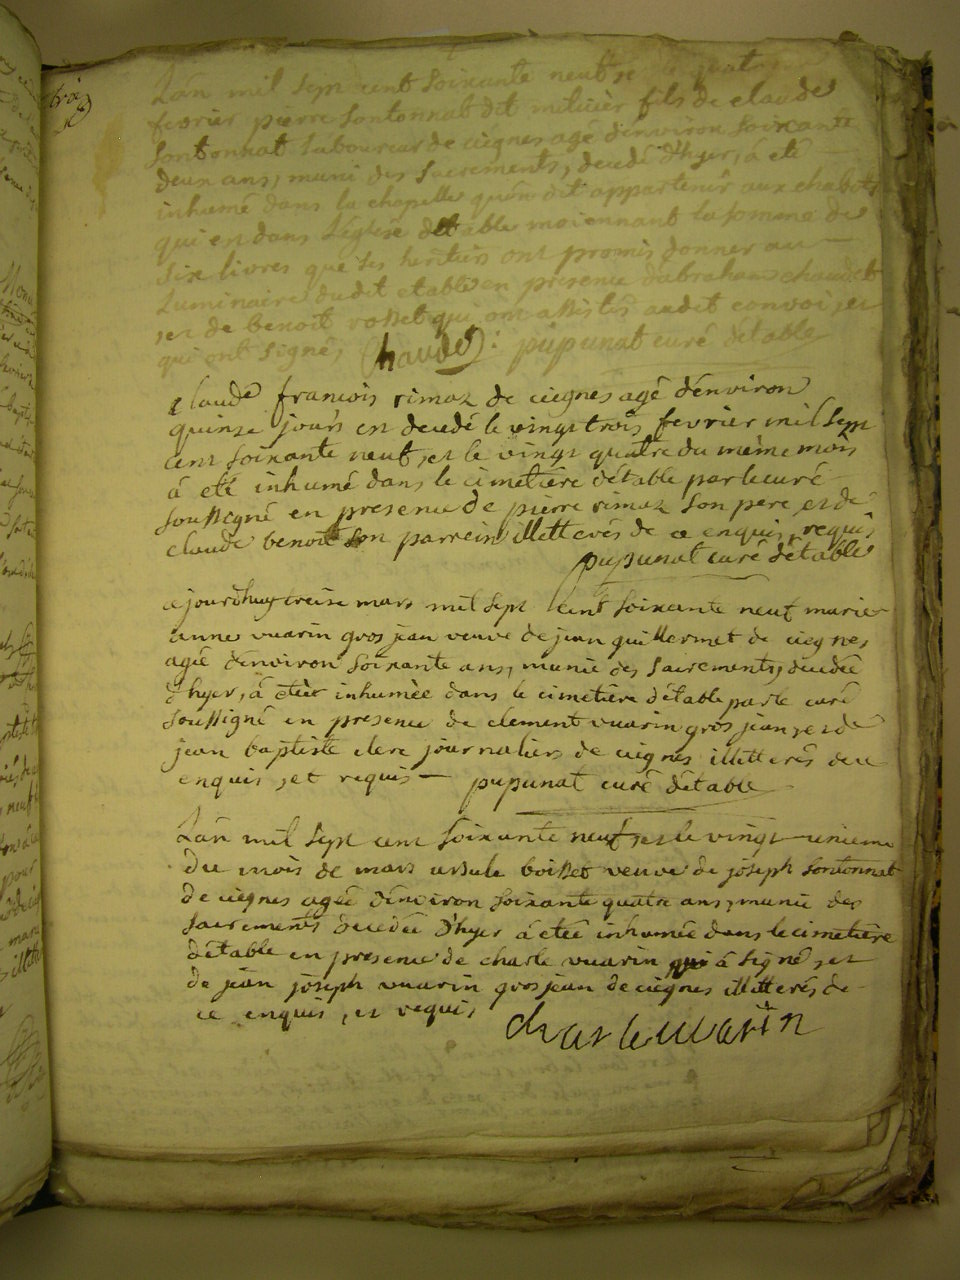 trois
L'an mil sept cent soixante neuf et le quatre
fevrier pierre sontonnat dit milicier fils de claude
sontonnat laboureur de ciegnes agé d'environ soixante
deux ans, muni des sacrements, decedé d'hyer, á eté
inhumé dans la chapelle qu'on dit appartenir aux chabots
qui est dans l'église détable moiennant la somme de
six livres que ses heritiers ont promis donner au
luminaire dudit etable en presence d'abraham chaudet
et de benoit rosset qui ont assistés audit convoi, et
qui ont signés Chaudet: pupunat curé détable
claude francois rimoz de ciegnes agé d'environ
quinze jours est decedé le vingt trois fevrier mil sept
cent soixante neuf, et le vingt quatre du même mois
á eté inhumé dans le cimetiere d'étable par le curé
soussigné en presence de pierre rimoz son pere, et de
claude benoit son parrein illitterés de ce enquis, requis
pupunat curé détable
cejourd'huy treise mars mil sept cent soixante neuf marie
anne vuarin gros jean veuve de jean guillermet de ciegnes
agée d'environ soixante ans, munie des sacrements, decedée
d'hyer, á etéé inhumée dans le cimetiere d'étable par le curé
soussigné en presence de clement vuarin gros jean, et de
jean baptiste clerc journaliers de ciegnes illitterés de ce
enquis, et requis — pupunat curé d'étable
L'an mil sept cent soixante neuf, et le vingt-unieme
du mois de mars ursule boisset veuve de joseph sontonnat
de ciegnes agée d'environ soixante quatre ans, munie des
sacrements decedée d'hyer á etéé inhumée dans le cimetiere
d'étable en presence de charle vuarin qui á signé, et
de jean joseph vuarin gros jean de ciegnes illitterés de
ce enquis, et requis
charle uuarin